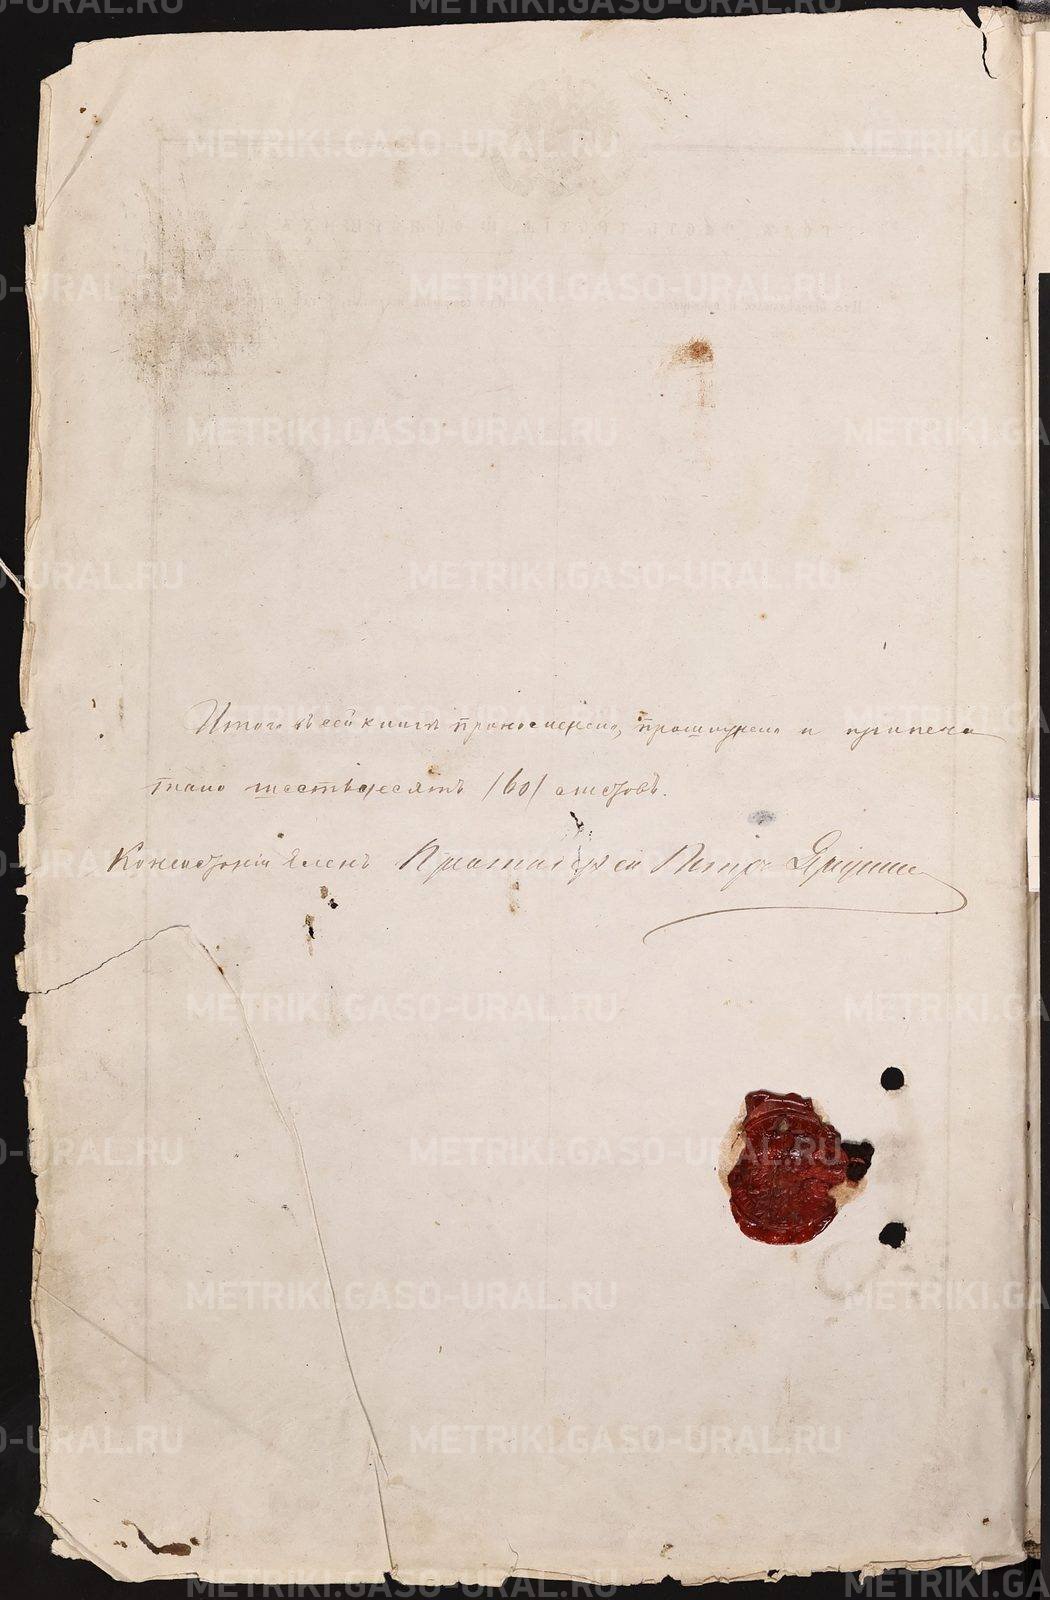 METRIKI.GASO-URAL.RU
Итого въ сей книгѣ пронумерено, прошнурено и припеча
тано шестьдесятъ /60/ листовъ.
Консисторіи Членъ Протоіерей Петръ